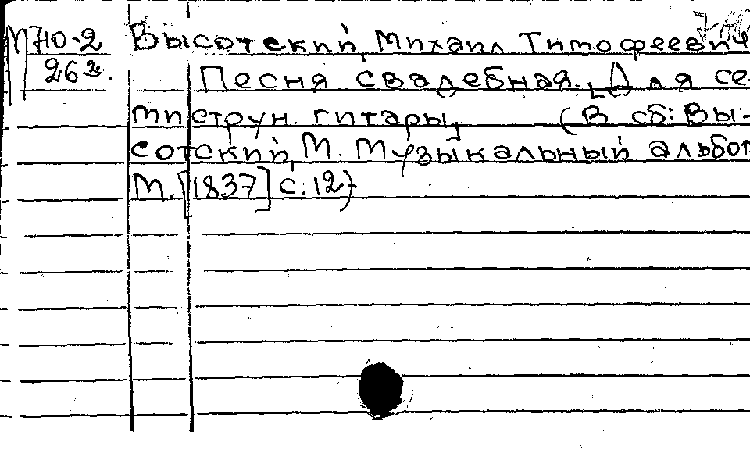 М710-2 Высотский, Михаил Тимофеевич
262. Песня свадебная. [Для се
миструн. гитары]
(В сб: Вы-
сотский, М. Музыкальный альбом
М. [1837] с. 12)